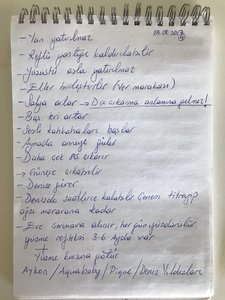 29.08.2017
- Yan yatırılmaz
- Reflü yastığı kaldırılabilir
- Yüzüstü asla yatırılmaz
- Eller birleştirilir (Ver marakası)
- Salya artar → Diş çıkarma anlamına gelmez!
- Baş teri artar
- Sesli kahkahaları başlar
- Aynada anneye güler
- Daha çok ses çıkarır
- Güneşe çıkabilir
- Denize girer
- Denizde saatlerce kalabilir Çenesi titreyip
ağzı morarana kadar
- Eve alınır, her gün yüzdürülür
yüzme refleksi 3-6 Ayda var
+
Yüzme kursuna götür
Aykon / Aquababy / / Deniz Yıldızları